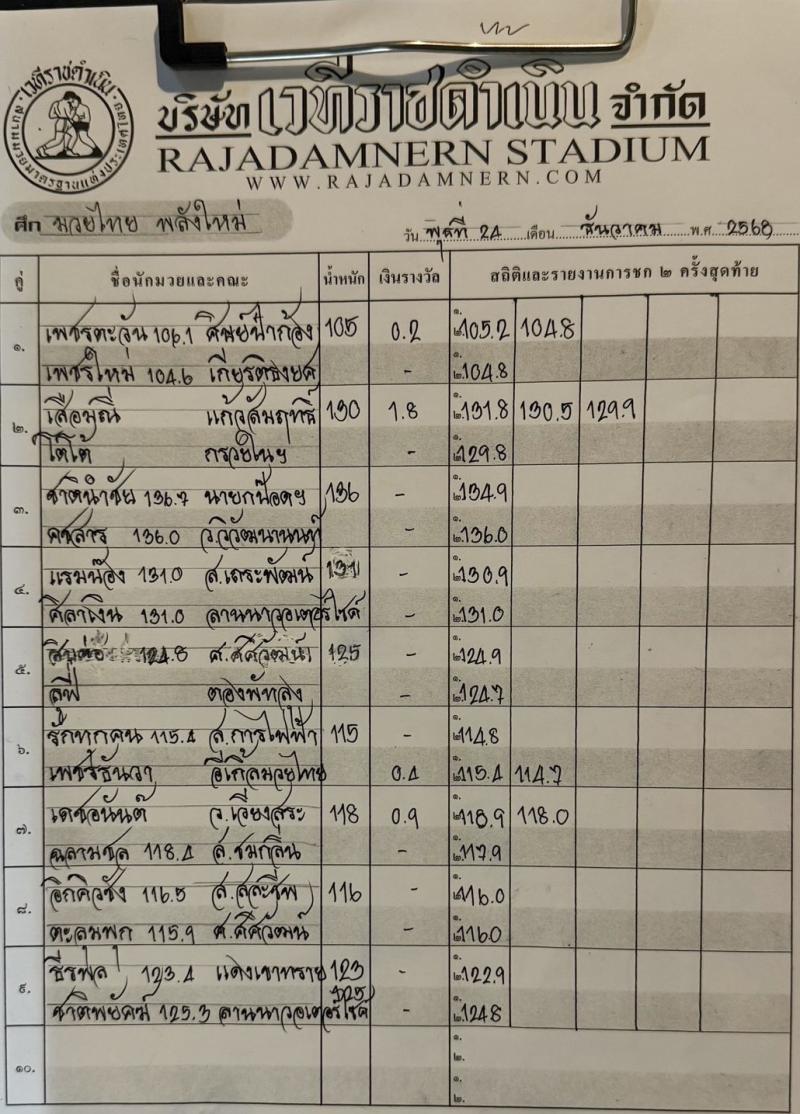 เวทีราชดำเนิน
บริษัท เวทีราชดำเนิน จำกัด
RAJADAMNERN STADIUM
WWW.RAJADAMNERN.COM
ศึก มวยไทย พลังใหม่ วัน พุธที่ 24 เดือน ธันวาคม พ.ศ. 2568
คู่ ชื่อนักมวยและคณะ น้ำหนัก เงินรางวัล สถิติและรายงานการชก ๒ ครั้งสุดท้าย
๑. เพชรตะวัน 106.1 ศิษย์ป๋าก้อง 105 0.2 ๑. ๒. 105.2 104.8
เพชรใหม่ 104.6 เกียรติธงยศ - ๑. ๒. 104.8
๒. เสือมณี แก้วสัมฤทธิ์ 130 1.8 ๑. ๒. 131.8 130.5 129.9
โตโต้ กรวยในฯ - ๑. ๒. 129.8
๓. ชาตินำชัย 136.7 นายกป๊อดฯ 136 - ๑. ๒. 134.9
คชสาร 136.0 ว.วิวัฒนานนท์ - ๑. ๒. 136.0
๔. แรมน้อง 131.0 ส.เถระพัฒน์ 131 - ๑. ๒. 130.9
ศิลาเงิน 131.0 ลานนาวอเตอร์ไซค์ - ๑. ๒. 131.0
๕. 124.8 ศ.ศศิวัฒน์ 125 - ๑. ๒. 124.9
ลฟี่ ตองพัทลุง - ๑. ๒. 124.7
๖. รักทุกคน 115.4 ส.การไฟฟ้า 115 - ๑. ๒. 114.8
เพชรธันวา อีเกิ้ลมวยไทย 0.4 ๑. ๒. 115.4 114.7
๗. เดชอนันต์ ว.เวียงสระ 118 0.9 ๑. ๒. 118.9 118.0
ฉลามชล 118.4 ส.ชมกลิ่น - ๑. ๒. 117.9
๘. อิกคิวซัง 116.5 ส.สละชีพ 116 - ๑. ๒. 116.0
ตะลุมพุก 115.9 ศ.ศศิวัฒน์ - ๑. ๒. 116.0
๙. ธีรพล 123.4 แดงเขาทราย 123 - ๑. ๒. 122.9
ชาติพยัคฆ์ 125.3 ลานนาวอเตอร์ไซค์ 125 - ๑. ๒. 124.8
๑๐. ๑.
๒.
๑.
๒.